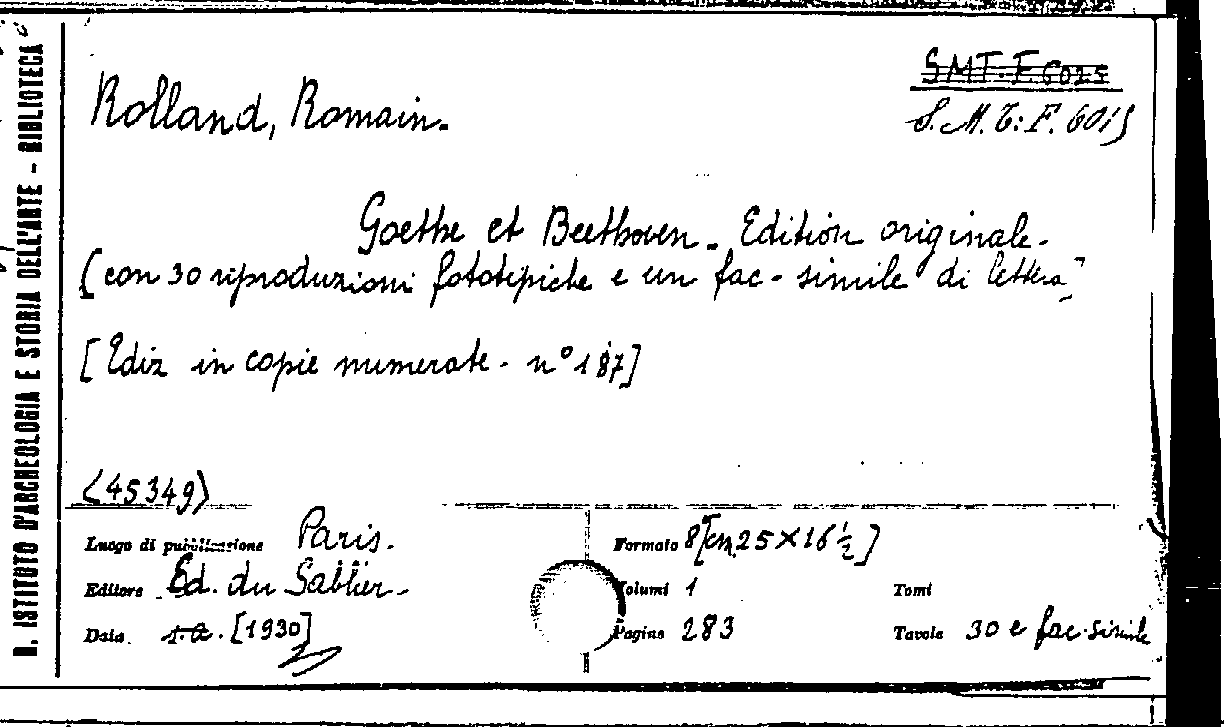 R. ISTITUTO D'ARCHEOLOGIA E STORIA DELL'ARTE - BIBLIOTECA
SMT. F. 6025
Rolland, Romain.
S.M.T: F. 6015
Goethe et Beethoven. Edition originale.
(con 30 riproduzioni fototipiche e un fac-simile di lettera]
[Ediz in copie numerate. n° 187]
(45349)
Luogo di pubblicazione Paris.
Formato 8 [cm. 25 X 16 ½]
Editore Ed. du Sablier.
Volumi 1
Tomi
Data s.a. [1930]
Pagine 283
Tavole 30 e fac-simile